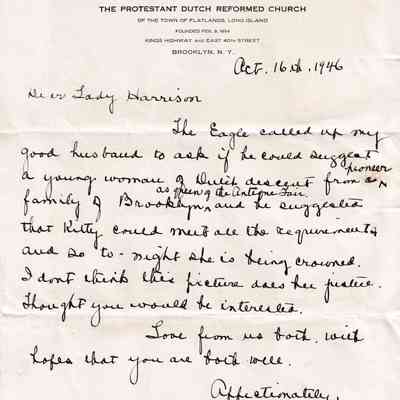 THE PROTESTANT DUTCH REFORMED CHURCH
OF THE TOWN OF FLATLANDS, LONG ISLAND
FOUNDED FEB. 9, 1654
KINGS HIGHWAY AND EAST 40TH STREET
BROOKLYN, N. Y.
Oct. 16th, 1946
Dear Lady Harrison
The Eagle called up my
good husband to ask if he could suggest
pioneer
a young woman of Dutch descent from a
as queen of the Antique Fair
family of Brooklyn, and he suggested
that Kitty could meet all the requirements
and so to-night she is being crowned.
I dont think this picture does her justice.
Thought you would be interested.
Love from us both, with
hopes that you are both well.
Affectionately,